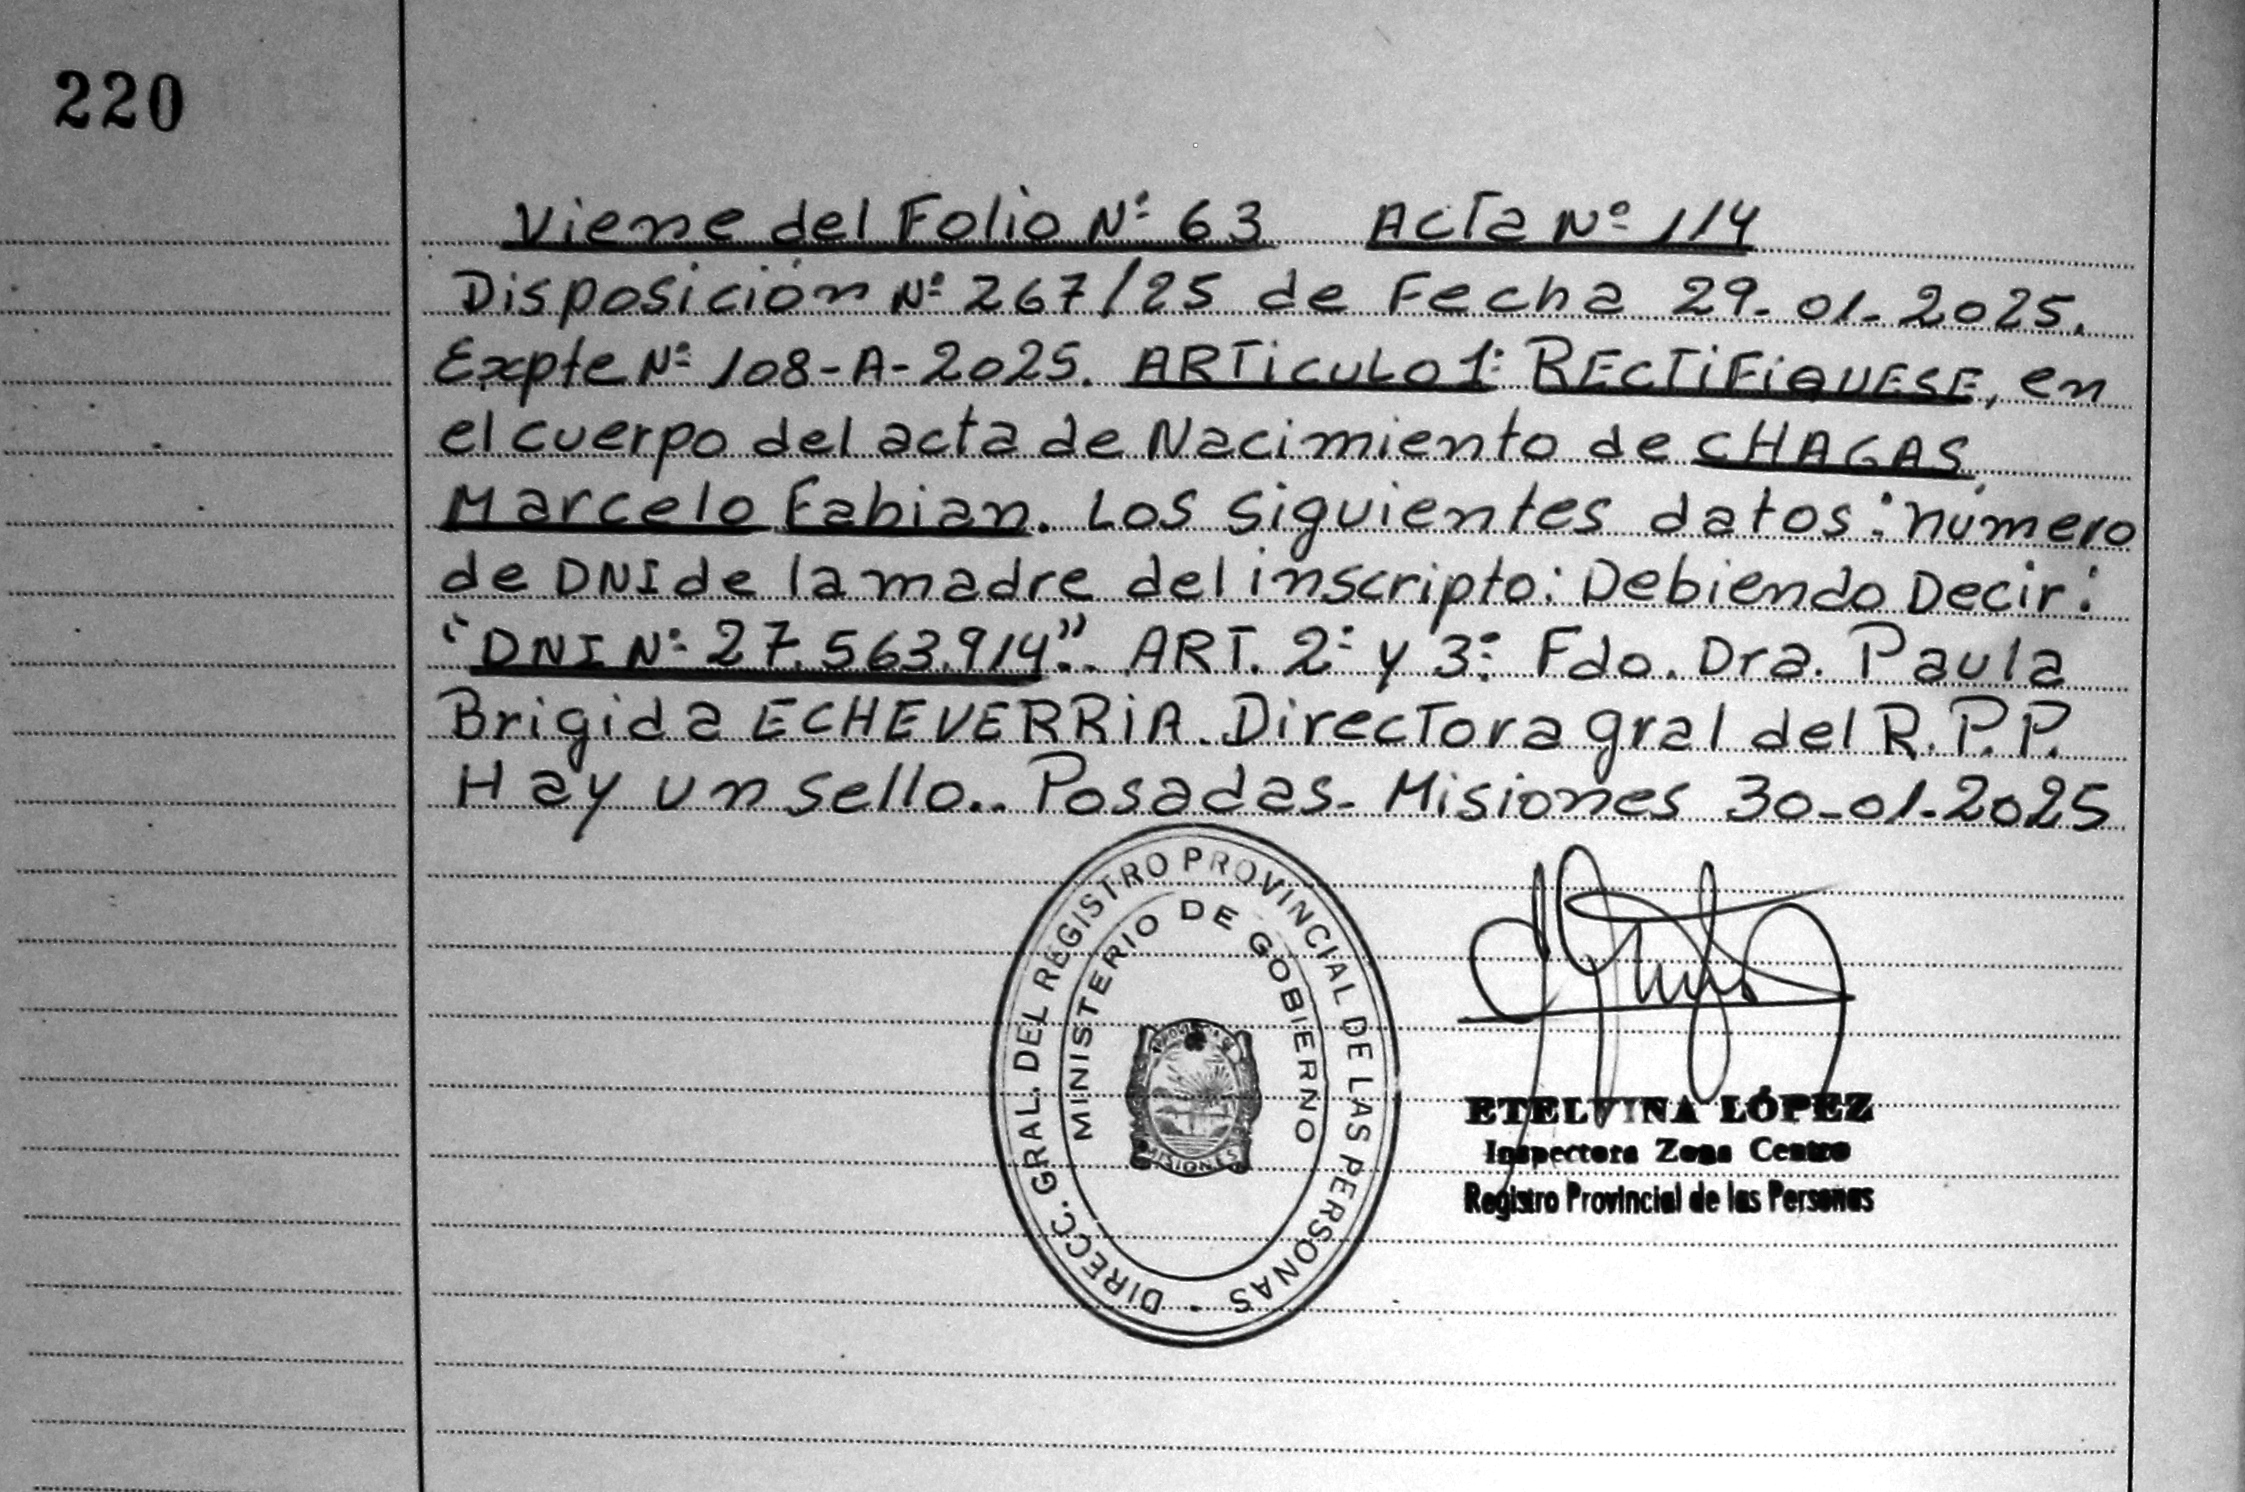 220
Viene del Folio Nº 63 Acta Nº 114
Disposición Nº 267/25 de Fecha 29-01-2025.
Expte Nº 108-A-2025. ARTiCULO 1º: RECTiFiQUESE, en
el cuerpo del acta de Nacimiento de CHAGAS
Marcelo Fabian. Los siguientes datos: número
de DNI de la madre del inscripto: Debiendo Decir:
"DNI Nº 27.563.914". ART. 2º y 3º Fdo. Dra. Paula
Brigida ECHEVERRiA. Directora gral del R.P.P.
Hay un sello.. Posadas- Misiones 30-01-2025
DIRECC. GRAL. DEL REGISTRO PROVINCIAL DE LAS PERSONAS -
MINISTERIO DE GOBIERNO
PROVINCIA DE
MISIONES
ETELVINA LÓPEZ
Inspectora Zona Centro
Registro Provincial de las Personas